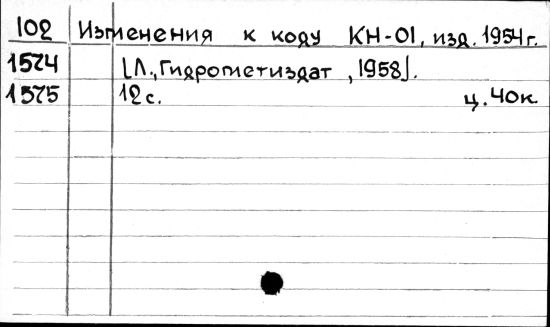 102 Изменения к коду КН-01, изд. 1954г.
1574 [Л., Гидрометиздат, 1958].
1575 12с. ц. 40к.